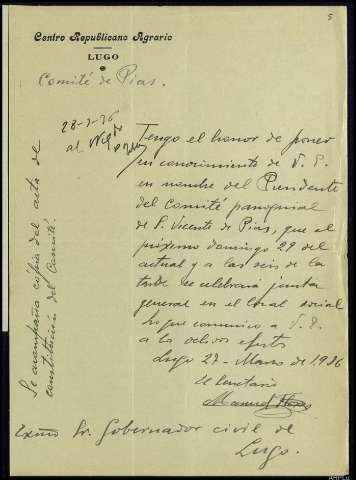 5
Centro Republicano Agrario
LUGO
Comité de Pias.
28-3-36
al
Tengo el honor de poner
en conocimiento de V. E.
en nombre del Presidente
del Comité parroquial
de S. Vicente de Pias, que el
próximo domingo 29 del
actual y a las seis de la
tarde se celebrará junta
general en el local social
lo que comunico a V. E.
a los debidos efectos
Lugo 27 - Marzo de 1936
El Secretario
Manuel
Excmo Sr. Gobernador civil de
Lugo.
Se acompaña cópia del acta de
constitución del Comité.